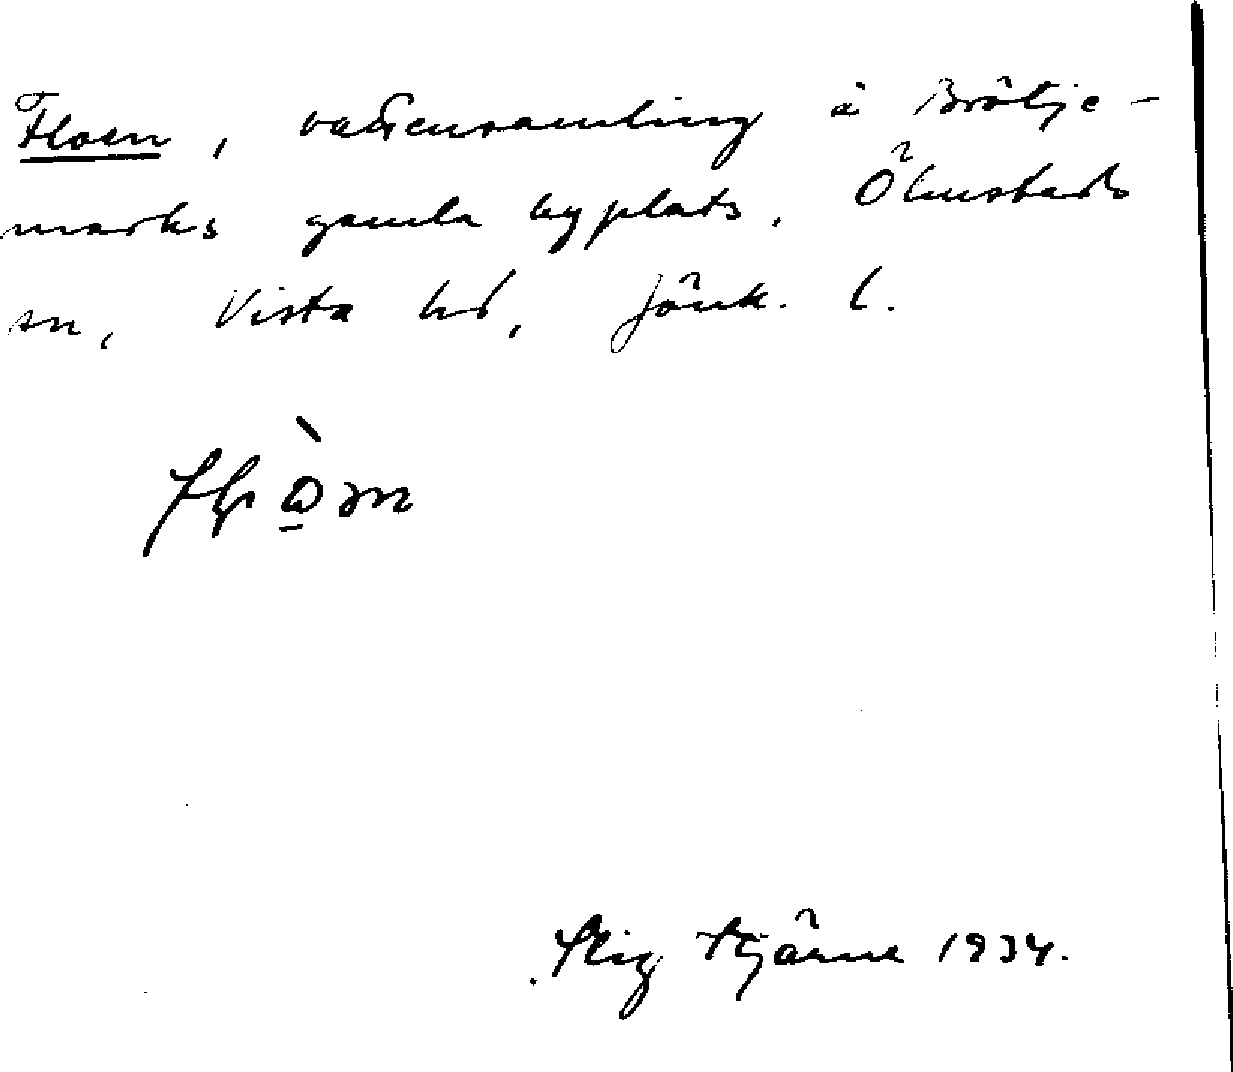 Floen, vattensamling å Brötje-
marks gamla byplats. Ölmstads
sn, Vista hd, Jönk. l.
Stig Stjärne 1934.